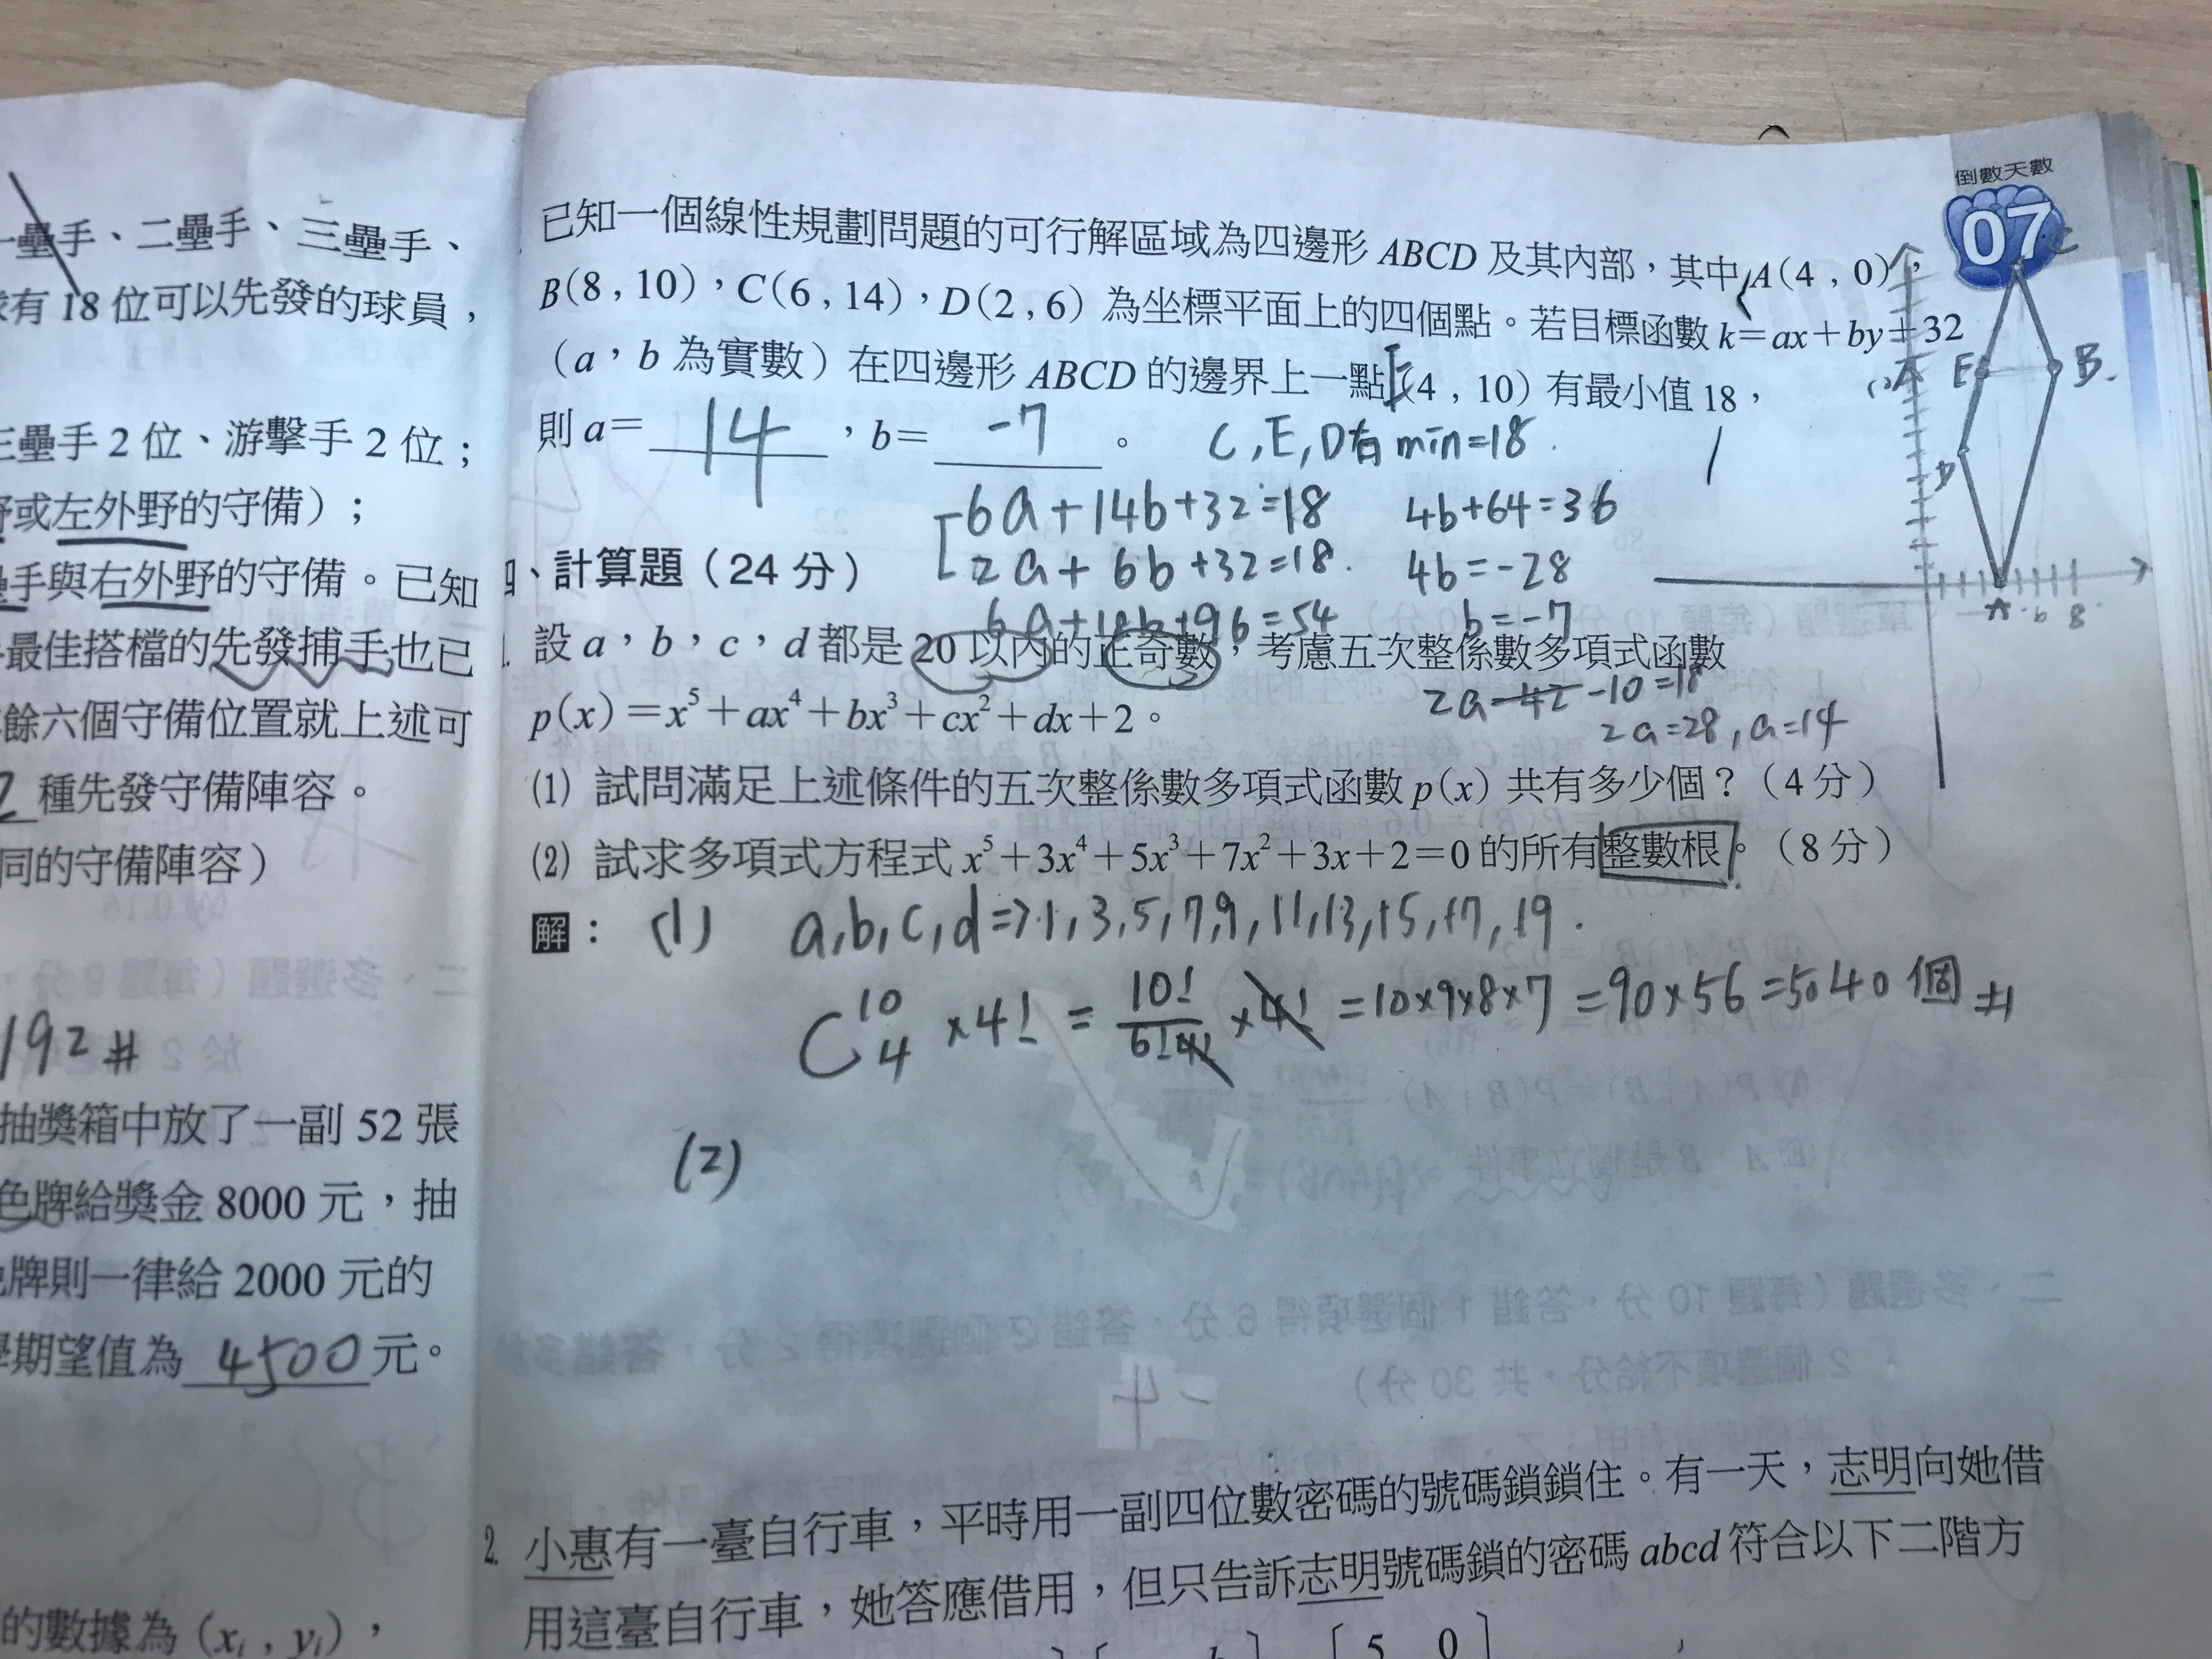 一壘手、二壘手、三壘手、
有 18 位可以先發的球員，
三壘手 2 位、游擊手 2 位；
或左外野的守備）；
壘手與右外野的守備。已知
最佳搭檔的先發捕手也已
餘六個守備位置就上述可
種先發守備陣容。
同的守備陣容）
192#
抽獎箱中放了一副 52 張
色牌給獎金 8000 元，抽
牌則一律給 2000 元的
期望值為 4500 元。
的數據為 (xᵢ , yᵢ)，
倒數天數
07
已知一個線性規劃問題的可行解區域為四邊形 ABCD 及其內部，其中 A(4 , 0)，
B(8 , 10)，C(6 , 14)，D(2 , 6) 為坐標平面上的四個點。若目標函數 k=ax+by+32
（a，b 為實數）在四邊形 ABCD 的邊界上一點 E(4 , 10) 有最小值 18，
則 a= 14 ，b= -7 。
C , E , D有 min=18 .
6a+14b+32=18
2a+6b+32=18.
6a+18b+96=54
4b+64=36
4b=-28
b=-7
2a-42-10=18
2a=28 , a=14
C
E
B
D
A
6
8
四、計算題（24 分）
1. 設 a，b，c，d 都是 20 以內的正奇數，考慮五次整係數多項式函數
p(x)＝x⁵＋ax⁴＋bx³＋cx²＋dx＋2。
(1) 試問滿足上述條件的五次整係數多項式函數 p(x) 共有多少個？（4 分）
(2) 試求多項式方程式 x⁵＋3x⁴＋5x³＋7x²＋3x＋2＝0 的所有整數根。（8 分）
解： (1) a,b,c,d => 1,3,5,7,9,11,13,15,17,19.
C¹⁰₄ ×4! = 10!/6!4! ×4! =10×9×8×7 =90×56 =5040 個 #
(2)
2. 小惠有一臺自行車，平時用一副四位數密碼的號碼鎖鎖住。有一天，志明向她借
用這臺自行車，她答應借用，但只告訴志明號碼鎖的密碼 abcd 符合以下二階方
5 0